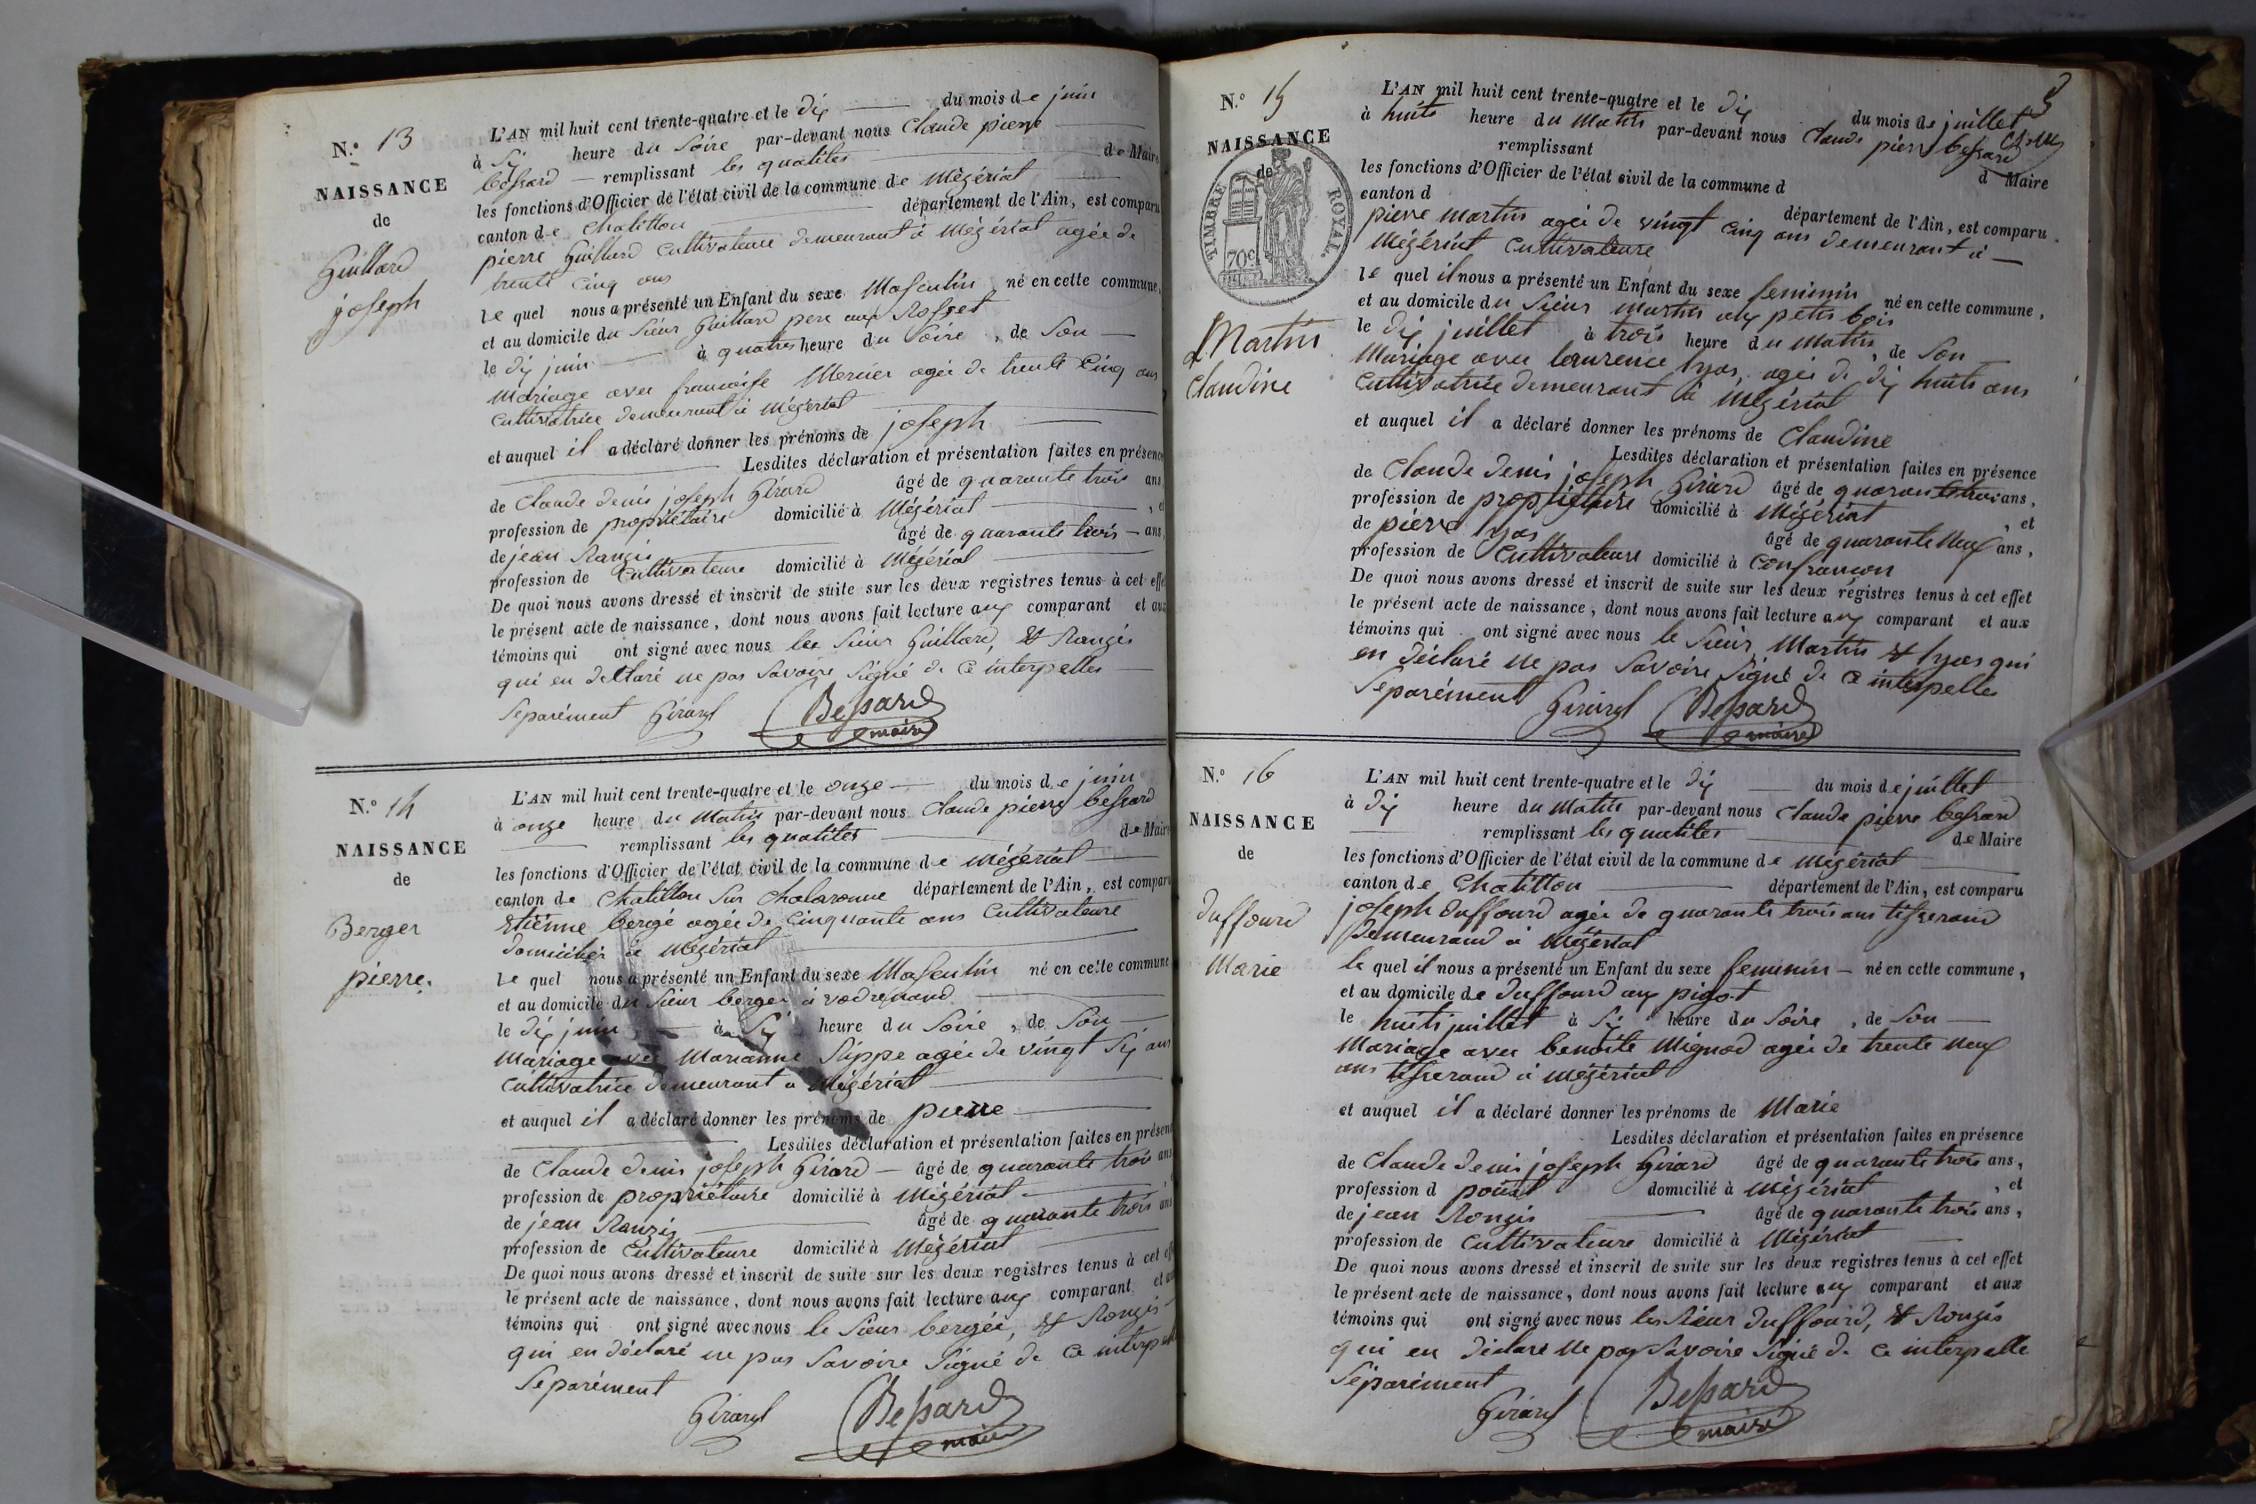 N.º 13
NAISSANCE
de
Guillard
joseph
L'AN mil huit cent trente-quatre et le dix du mois de juin
à Six heure du Soire par-devant nous Claude pierre
bessard remplissant les qualites de Maire
les fonctions d'Officier de l'état civil de la commune de Mézériat
canton de Chatillon département de l'Ain, est comparu
pierre Guillard Cultivateure demeurant à Mézériat agée de
trente Cinq ans
le quel nous a présenté un Enfant du sexe Masculin né en cette commune,
et au domicile du Sieur Guillard pere aux Rosset
le dix juin à quatres heure du Soire, de Son
Mariage avec francoise Mercier agée de trente Cinq ans
Cultivatrice demeurant à Mézériat
et auquel il a déclaré donner les prénoms de joseph
Lesdites déclaration et présentation faites en présence
de Claude denis joseph Girard âgé de quarante trois ans
profession de propriétaire domicilié à Mézériat, et
de jean Rongis âgé de quarante trois ans,
profession de Cultivateure domicilié à Mézériat
De quoi nous avons dressé et inscrit de suite sur les deux registres tenus à cet effet
le présent acte de naissance, dont nous avons fait lecture aux comparant et aux
témoins qui ont signé avec nous les Sieur Guillard, et Rongis
qui en declaré ne pas Savoire Signé de ce interpelles
Separément Girard Bessard
maire
N.º 14
NAISSANCE
de
Berger
pierre.
L'AN mil huit cent trente-quatre et le onze du mois de juin
à onze heure du Matin par-devant nous Claude pierre bessard
remplissant les qualites de Maire
les fonctions d'Officier de l'état civil de la commune de Mézériat
canton de Chatillon Sur Chalaronne département de l'Ain, est comparu
Etiénne bergé agée de Cinquante ans Cultivateure
domicilier à Mézériat
le quel nous a présenté un Enfant du sexe Masculin né en cette commune
et au domicile du Sieur berger à
le dix juin à Six heure du Soire, de Son
Mariage avec Marianne Sippe agée de vingt Six ans
Cultivatrice demeurant a Mézériat
et auquel il a déclaré donner les prénoms de pierre
Lesdites déclaration et présentation faites en présence
de Claude denis joseph Girard âgé de quarante trois ans
profession de propriétaire domicilié à Mézériat
de jean Rongis âgé de quarante trois ans
profession de Cultivateure domicilié à Mézériat
De quoi nous avons dressé et inscrit de suite sur les deux registres tenus à cet effet
le présent acte de naissance, dont nous avons fait lecture aux comparant et aux
témoins qui ont signé avec nous le Sieur bergée, et Rongis
qui en déclaré ne pas Savoire Signé de ce interpelle
Separément
Girard Bessard
maire
3
N.º 15
NAISSANCE
de
TIMBRE ROYAL.
70c
Martin
Claudine
L'AN mil huit cent trente-quatre et le dix du mois de juillet
à huits heure du Matin par-devant nous Claude pierre bessard
remplissant d Maire
les fonctions d'Officier de l'état civil de la commune d
canton d département de l'Ain, est comparu
pierre Martin agée de vingt Cinq ans demeurant à
Mézériat Cultivateure
le quel il nous a présenté un Enfant du sexe feminin né en cette commune,
et au domicile du Sieur Martin aux petis bois
le dix juillet à trois heure du Matin, de Son
Mariage avec laurence lyas, agée de dix huits ans
Cultivatrice demeurant à Mézériat
et auquel il a déclaré donner les prénoms de Claudine
Lesdites déclaration et présentation faites en présence
de Claude denis joseph Girard âgé de quarante trois ans,
profession de propriétaire domicilié à Mézériat, et
de pierre lyas âgé de quarante neuf ans,
profession de Cultivateure domicilié à Confrancon
De quoi nous avons dressé et inscrit de suite sur les deux régistres tenus à cet effet
le présent acte de naissance, dont nous avons fait lecture aux comparant et aux
témoins qui ont signé avec nous le Sieur Martin et lyas qui
en déclaré ne pas Savoire Signé de ce interpelles
Separément Girard Bessard
maire
N.º 16
NAISSANCE
de
Duffourd
Marie
L'AN mil huit cent trente-quatre et le dix du mois de juillet
à dix heure du Matin par-devant nous Claude pierre bessard
remplissant les qualites de Maire
les fonctions d'Officier de l'état civil de la commune de Mézériat
canton de Chatillon département de l'Ain, est comparu
joseph Duffourd agée de quarante trois ans tisserand
Demeurand à Mézériat
le quel il nous a présenté un Enfant du sexe feminin né en cette commune,
et au domicile de Duffourd aux pigot
le huits juillet à Six heure du Soire, de Son
Mariage avec benoîte Mignod agée de trente neuf
ans tisserand à Mézériat
et auquel il a déclaré donner les prénoms de Marie
Lesdites déclaration et présentation faites en présence
de Claude denis joseph Girard âgé de quarante trois ans,
profession d domicilié à Mézériat, et
de jean Rongis âgé de quarante trois ans,
profession de Cultivateure domicilié à Mézériat
De quoi nous avons dressé et inscrit de suite sur les deux registres tenus à cet effet
le présent acte de naissance, dont nous avons fait lecture aux comparant et aux
témoins qui ont signé avec nous les Sieur Duffourd, et Rongis
qui en déclaré ne pas Savoire Signé de ce interpelle
Séparément
Girard Bessard
maire